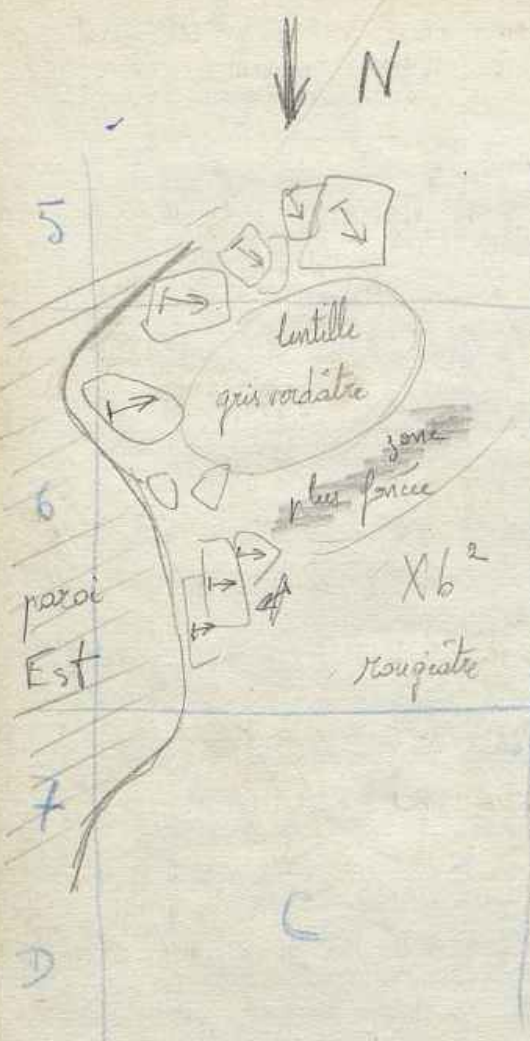 N
5
lentille
gris verdâtre
zone
plus foncée
6
Xb²
paroi
Est
rougeâtre
7
C
D